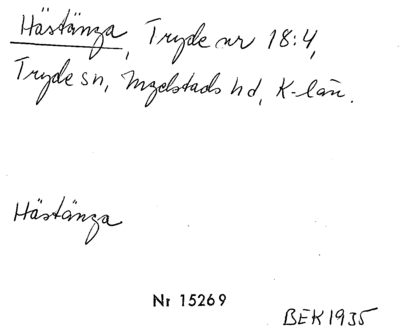 Hästänga, Tryde nr 18:4,
Tryde sn, Ingelstads hd, K-län.
Hästänga
Nr 15269
BEK 1935